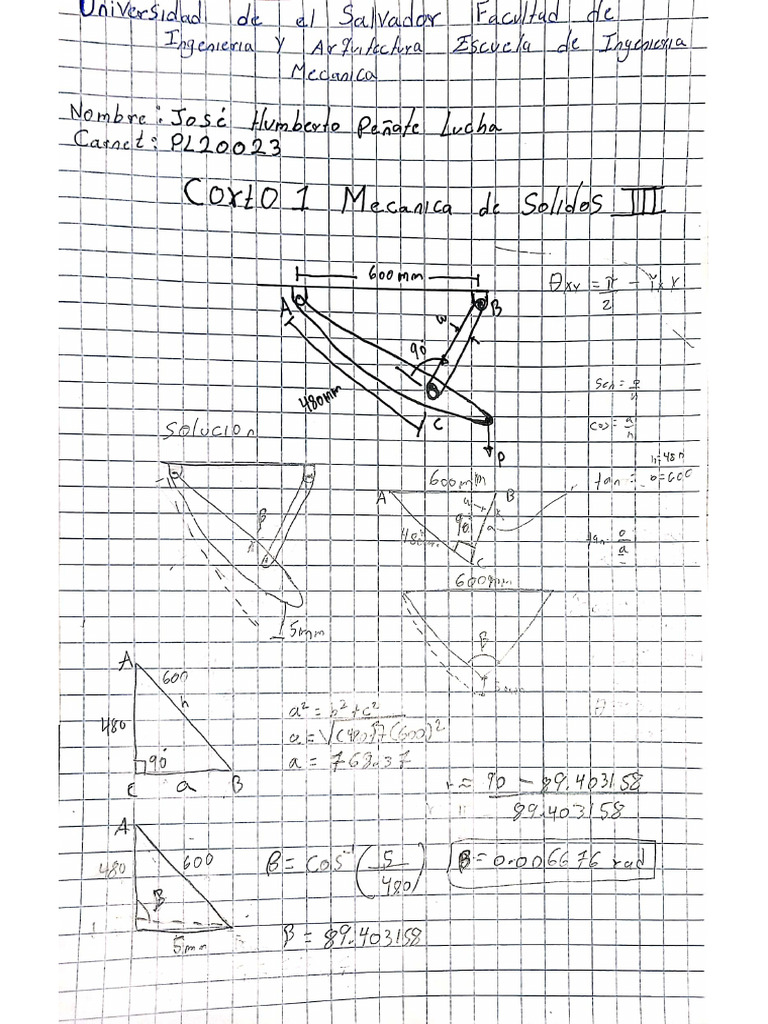 Universidad de el Salvador Facultad de
Ingenieria y Arquitectura Escuela de Ingenieria
Mecanica
Nombre: José Humberto Peñate Lucha
Carnet: PL20023
Corto 1 Mecanica de Solidos III
600mm
A
B
90°
480mm
C
P
θxy = π/2 - γxy
cos = a/h
tan = o/a
solucion
β
5mm
600mm
A
B
90
a
C
600mm
β
A
600
h
480
90°
C
a
B
a² = b² + c²
a = 768.37
90 - 89.403158
89.403158
A
480
600
β
5mm
β = cos⁻¹ (5/480)
β = 0.006676 rad
β = 89.403158